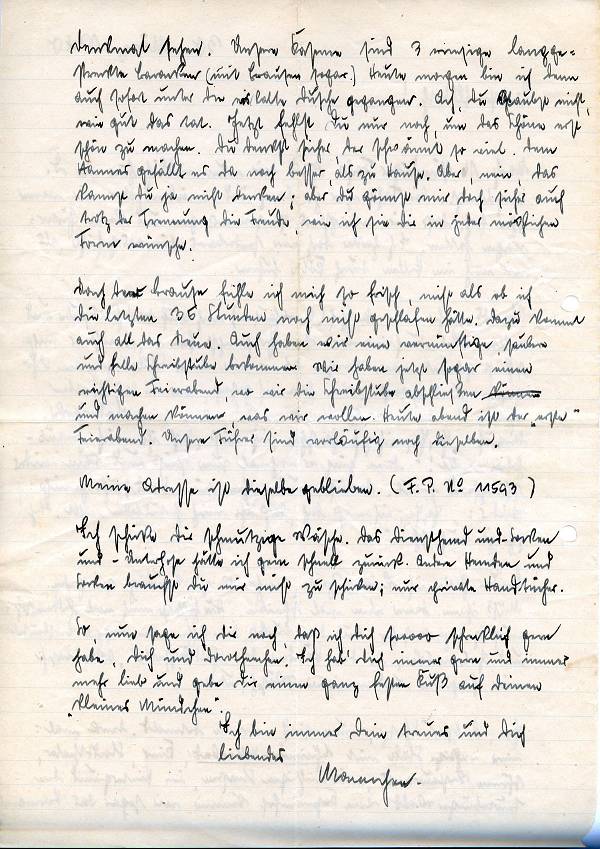 denkmal sehen. Unsere Kaserne sind 3 riesige langge-
streckte Baracken (mit Brausen sogar.) Heute morgen bin ich denn
auch sofort unter die eiskalte Dusche gegangen. Ach, du glaubst nicht,
wie gut das tat. Jetzt fehlst Du nur noch, um das Schöne erst
schön zu machen. Du denkst sicher, der schwärmt so viel. Dem
Hannes gefällt es da noch besser, als zu Hause. Aber nein, das
kannst du ja nicht denken; aber du gönnst mir doch sicher auch
trotz der Trennung die Freude, wie ich sie dir in jeder möglichen
Form wünsche.
Nach der Brause fühle ich mich so frisch, nicht als ob ich
die letzten 36 Stunden noch nicht geschlafen hätte. Dazu kommt
auch all das Neue. Auch haben wir eine vernünftige, saubere
und helle Schreibstube bekommen. Wir haben jetzt sogar einen
richtigen Feierabend, wo wir die Schreibstube abschließen
und machen können, was wir wollen. Heute abend ist der "erste"
Feierabend. Unsere Führer sind vorläufig noch dieselben.
Meine Adresse ist dieselbe geblieben. (F.P. No 11593)
Ich schicke dir schmutzige Wäsche. Das Diensthemd und Socken
und -Unterhose hätte ich gern schnell zurück. Andere Hemden und
Socken brauchst Du mir nicht zu schicken; nur private Handtücher.
So, nun sage ich dir noch, daß ich dich sooooo schrecklich gern
habe, Dich und Dorothechen. Ich hab dich immer gern und immer
mehr lieb und gebe dir einen ganz festen Kuß auf deinen
"kleines Mündchen".
Ich bin immer Dein treues und Dich
liebendes
Mannchen.